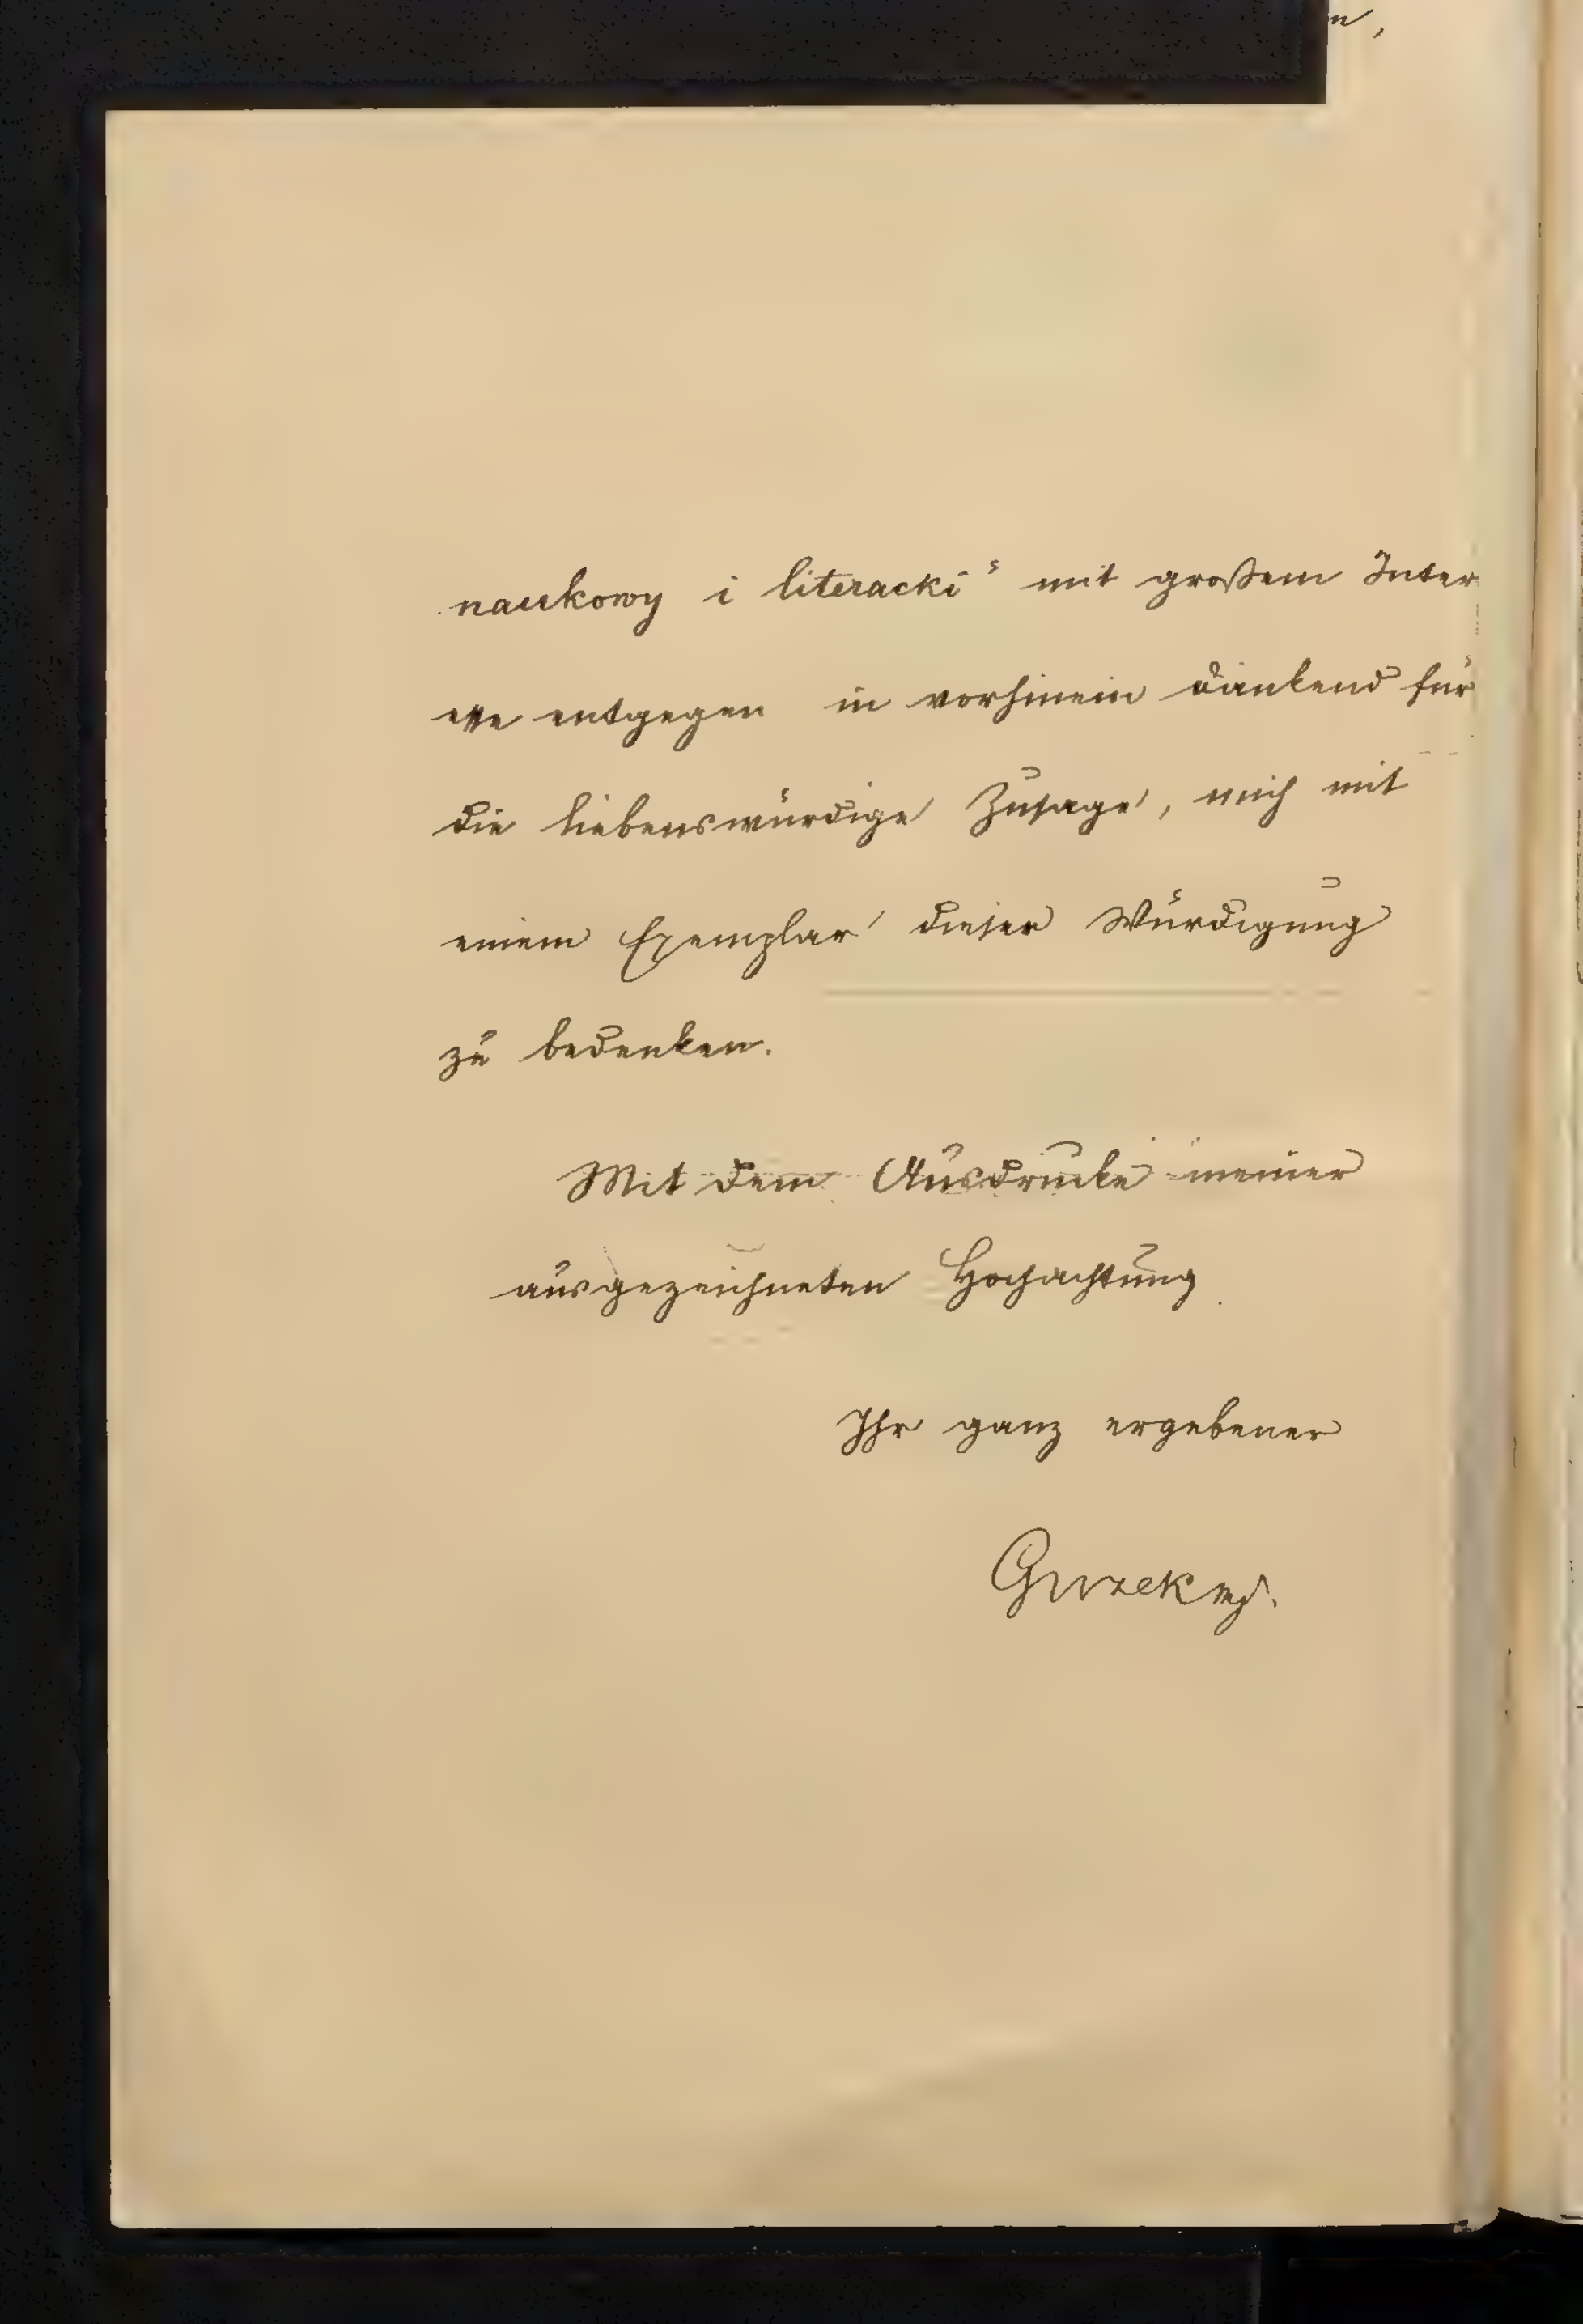 naukowy i literacki" mit großem Inter
esse entgegen in vorhinein dankend für
die liebenswürdige Zusage, mich mit
einem Exemplar dieser Würdigung
zu bedenken.
Mit dem Ausdrucke meiner
ausgezeichneten Hochachtung
Ihr ganz ergebener